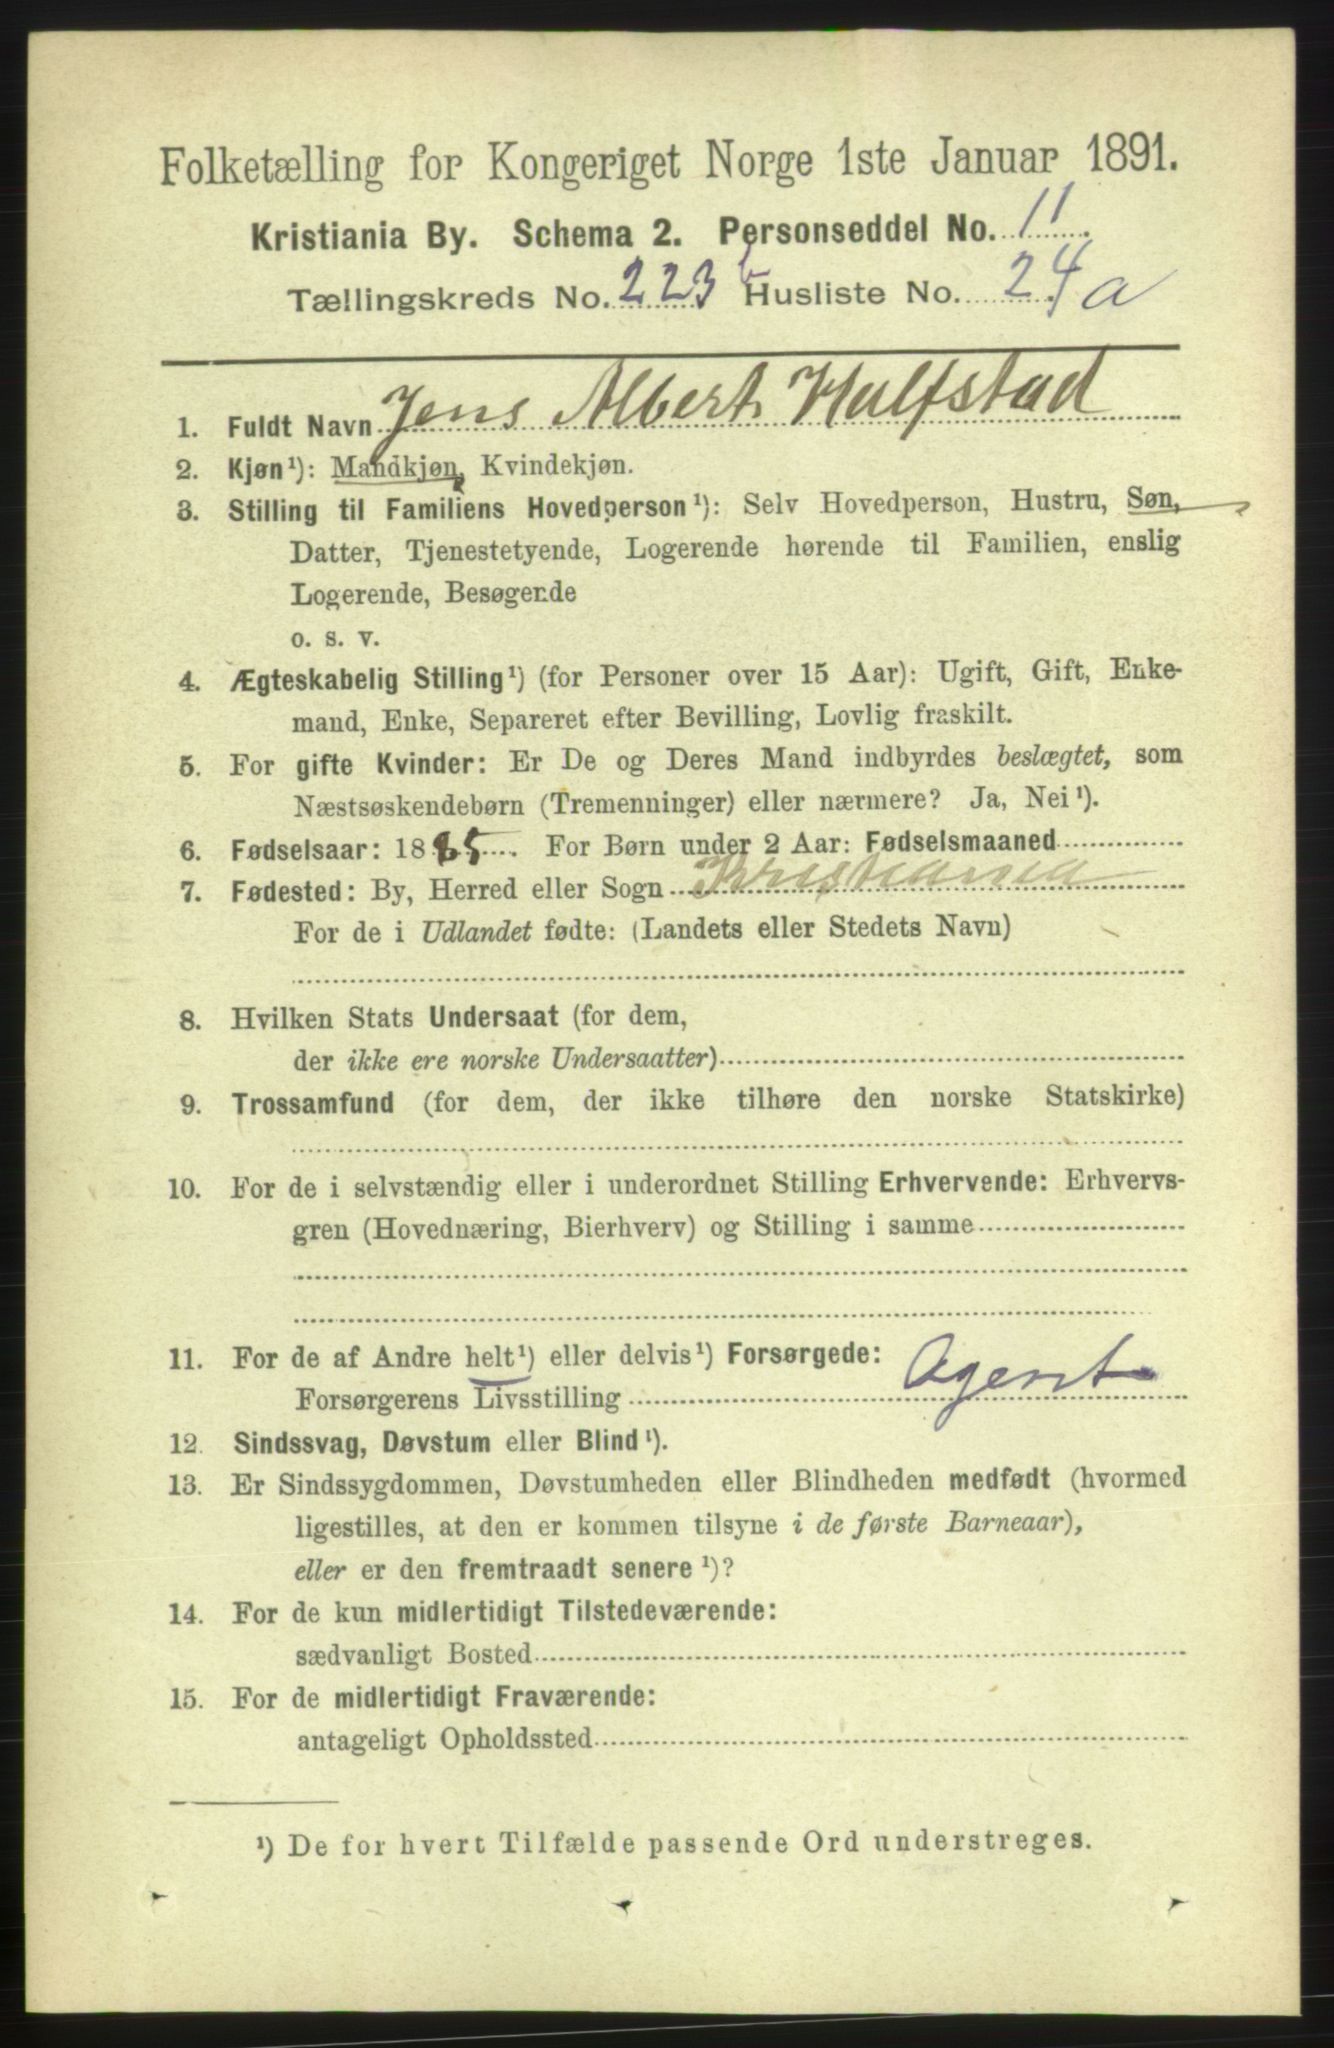 Folketælling for Kongeriget Norge 1ste Januar 1891.
Kristiania By. Schema 2. Personseddel No. 11
Tællingskreds No. 223 b Husliste No. 24 a
1. Fuldt Navn Jens Albert Hulfstad
2. Kjøn¹): Mandkjøn, Kvindekjøn.
3. Stilling til Familiens Hovedperson¹): Selv Hovedperson, Hustru, Søn,
Datter, Tjenestetyende, Logerende hørende til Familien, enslig
Logerende, Besøgende
o. s. v.
4. Ægteskabelig Stilling¹) (for Personer over 15 Aar): Ugift, Gift, Enke-
mand, Enke, Separeret efter Bevilling, Lovlig fraskilt.
5. For gifte Kvinder: Er De og Deres Mand indbyrdes beslægtet, som
Næstsøskendebørn (Tremenninger) eller nærmere? Ja, Nei¹).
6. Fødselsaar: 1885. For Børn under 2 Aar: Fødselsmaaned
7. Fødested: By, Herred eller Sogn Kristiania
For de i Udlandet fødte: (Landets eller Stedets Navn)
8. Hvilken Stats Undersaat (for dem,
der ikke ere norske Undersaatter)
9. Trossamfund (for dem, der ikke tilhøre den norske Statskirke)
10. For de i selvstændig eller i underordnet Stilling Erhvervende: Erhvervs-
gren (Hovednæring, Bierhverv) og Stilling i samme
11. For de af Andre helt¹) eller delvis¹) Forsørgede:
Forsørgerens Livsstilling Agent
12. Sindssvag, Døvstum eller Blind¹).
13. Er Sindssygdommen, Døvstumheden eller Blindheden medfødt (hvormed
ligestilles, at den er kommen tilsyne i de første Barneaar),
eller er den fremtraadt senere¹)?
14. For de kun midlertidigt Tilstedeværende:
sædvanligt Bosted
15. For de midlertidigt Fraværende:
antageligt Opholdssted
¹) De for hvert Tilfælde passende Ord understreges.